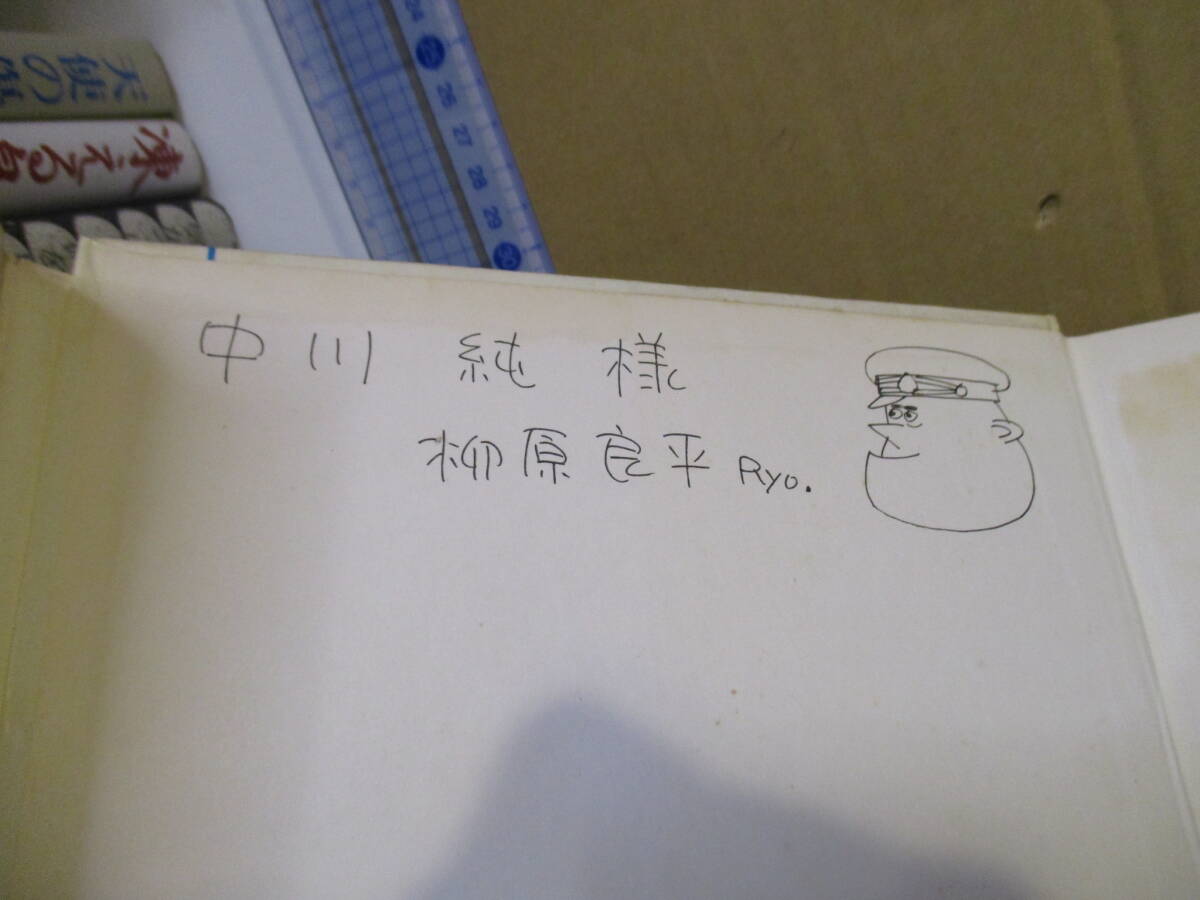 天使の
凍える
24
25
26
27
28
29
30
中川 純 様
柳原良平 Ryo.